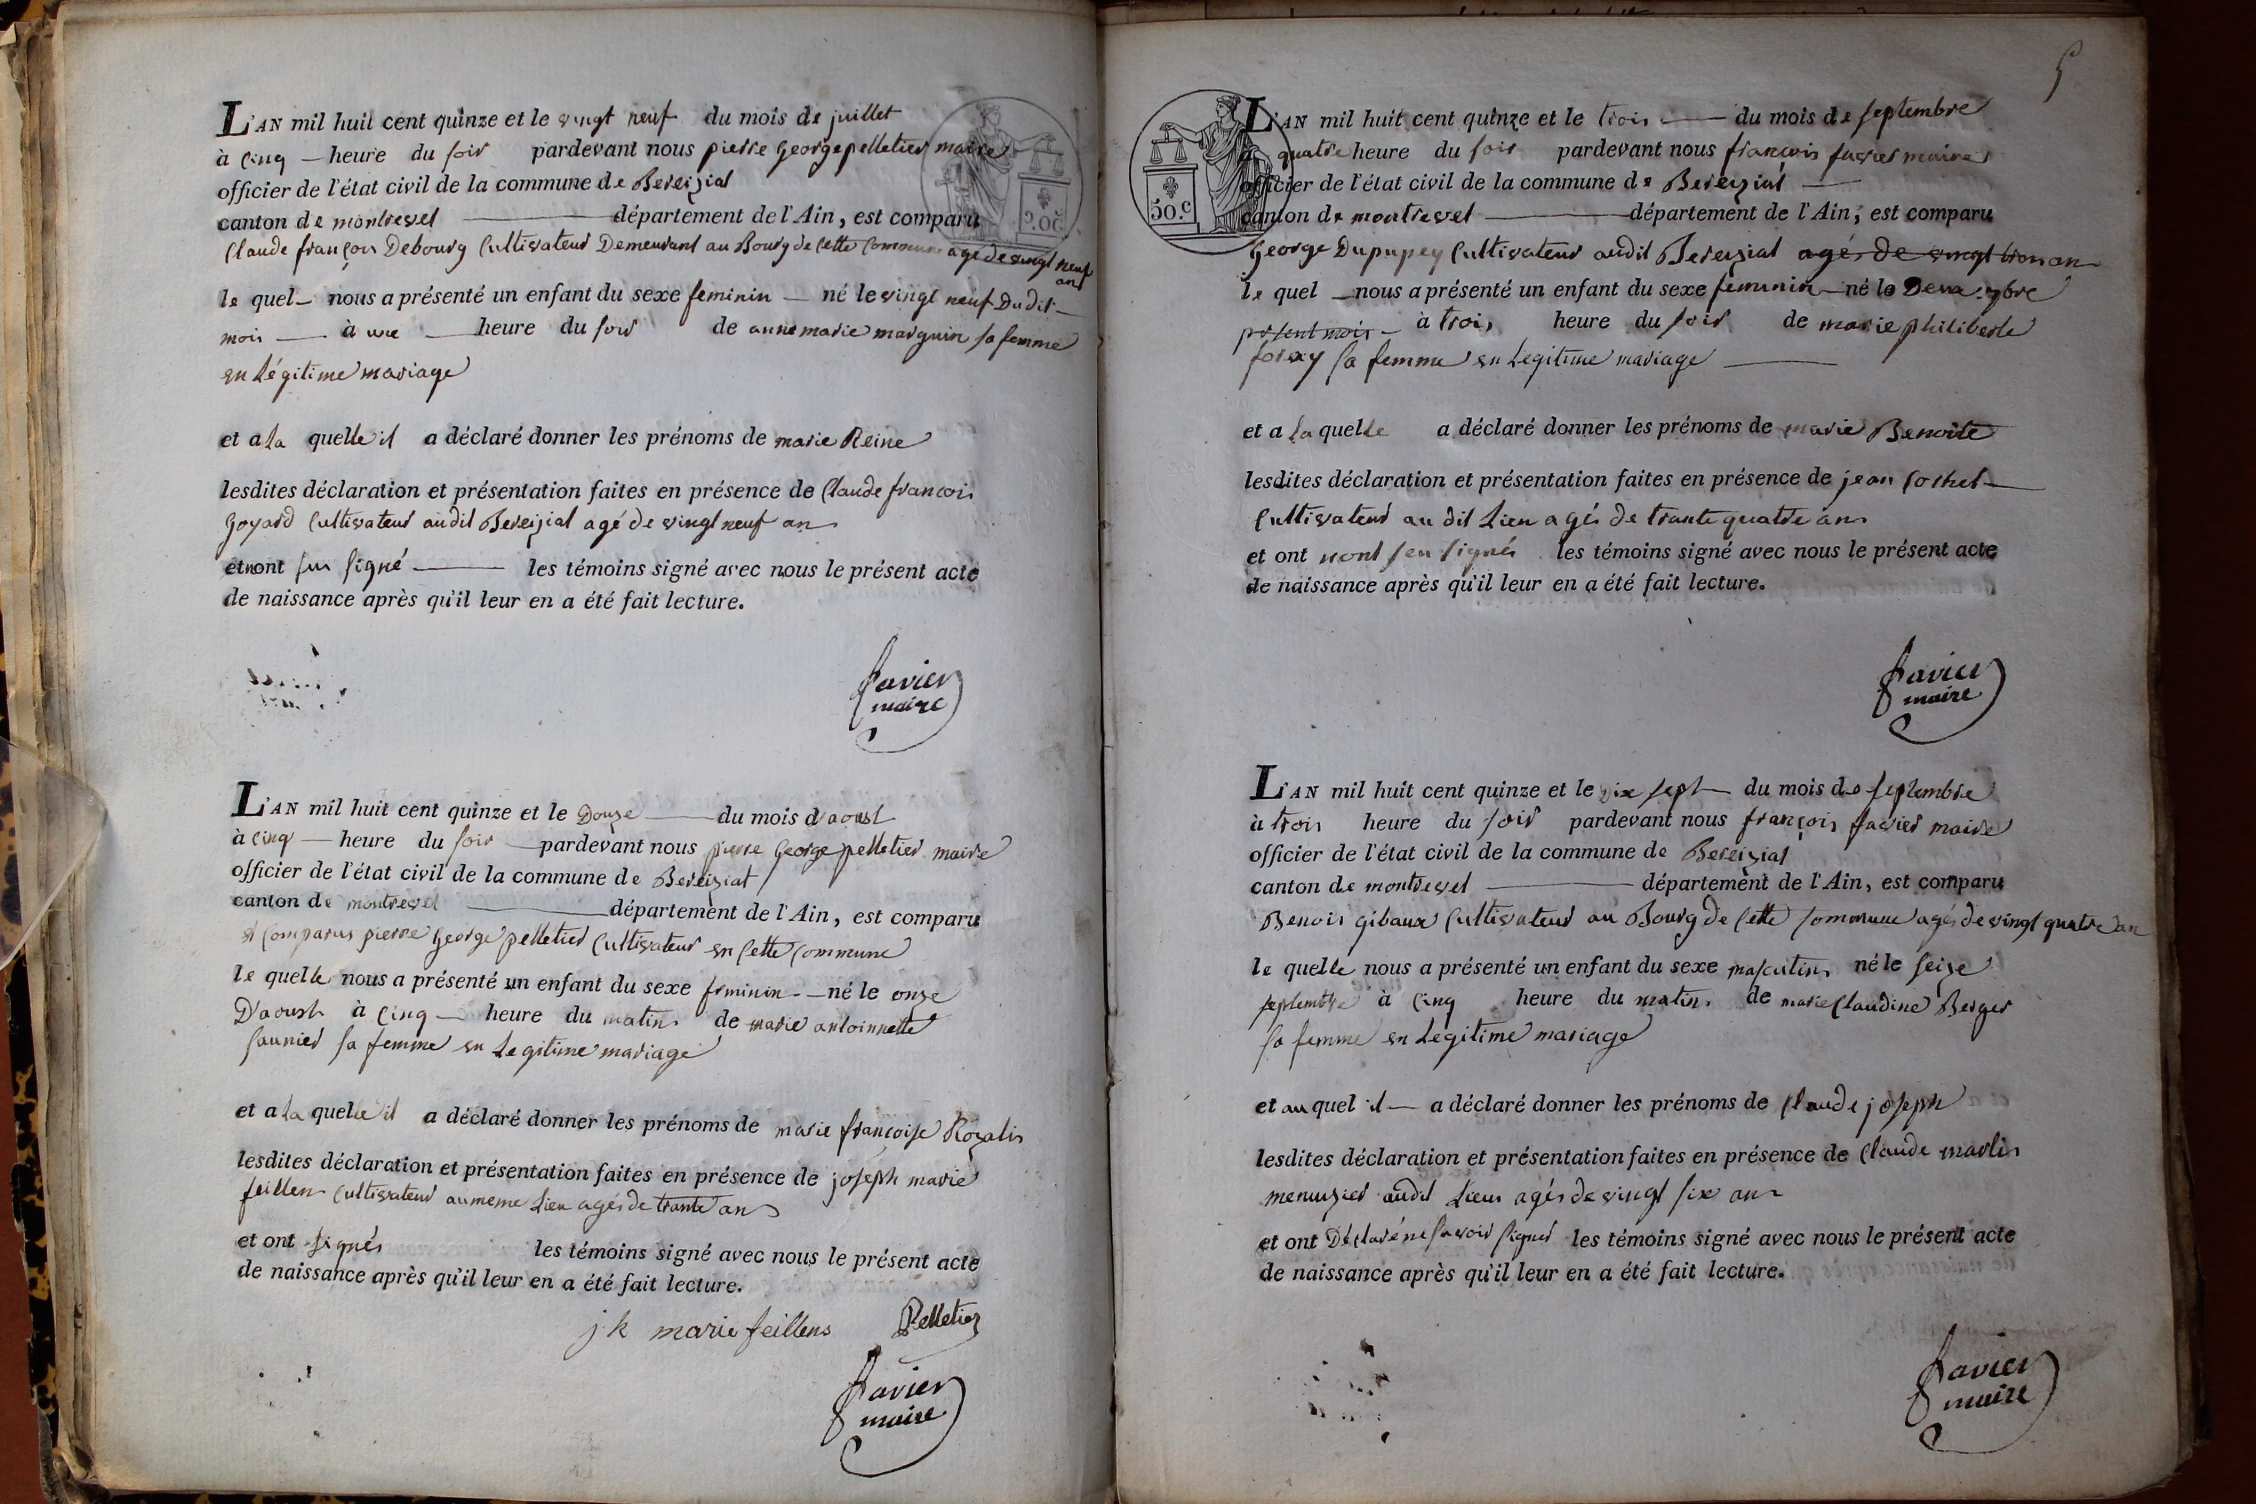 L'AN mil huit cent quinze et le vingt neuf du mois de juillet
à cinq heure du soir pardevant nous pierre George pelletier maire
officier de l'état civil de la commune de Bereiziat
canton de montrevel département de l'Ain, est comparu
Claude françois Debourg Cultivateur Demeurant au Bourg de cette Commune agé de vingt neuf
ans
le quel nous a présenté un enfant du sexe feminin né le vingt neuf Dudit
mois à une heure du soir de anne marie marguin sa femme
en Légitime mariage
et a La quelle il a déclaré donner les prénoms de marie Reine
lesdites déclaration et présentation faites en présence de Claude francois
Goyard Cultivateur audit Bereiziat agé de vingt neuf ans
et nont seu signé les témoins signé avec nous le présent acte
de naissance après qu'il leur en a été fait lecture.
favier
maire
L'AN mil huit cent quinze et le Douze du mois d'aoust
à cinq heure du soir pardevant nous pierre George pelletier maire
officier de l'état civil de la commune de Bereiziat
canton de montrevel département de l'Ain, est comparu
et Comparus pierre George pelletier Cultivateur en Cette Commune
le quelle nous a présenté un enfant du sexe feminin né le onze
D'aoust à cinq heure du matin de marie antoinnette
saunier sa femme en Legitime mariage
et a La quelle il a déclaré donner les prénoms de marie françoise Rozalis
lesdites déclaration et présentation faites en présence de joseph marie
feillens Cultivateur au meme Lieu agés de trante ans
et ont signés les témoins signé avec nous le présent acte
de naissance après qu'il leur en a été fait lecture.
j h marie feillens Pelletier
favier
maire
5
50.c
L'AN mil huit cent quinze et le trois du mois de septembre
à quatre heure du soir pardevant nous françois favier maire
officier de l'état civil de la commune de Bereiziat
canton de montrevel département de l'Ain, est comparu
George Dupupey Cultivateur audit Bereiziat agés de vingt trois an
le quel nous a présenté un enfant du sexe feminin né le Deux
présent mois à trois heure du soir de marie philiberte
sa femme en Legitime mariage
et a La quelle a déclaré donner les prénoms de marie Benoite
lesdites déclaration et présentation faites en présence de jean
Cultivateur au dit Lieu agés de trante quatre ans
et ont nont seu signés les témoins signé avec nous le présent acte
de naissance après qu'il leur en a été fait lecture.
favier
maire
L'AN mil huit cent quinze et le dix sept du mois de septembre
à trois heure du soir pardevant nous françois favier maire
officier de l'état civil de la commune de Bereiziat
canton de montrevel département de l'Ain, est comparu
Benois gibaux Cultivateur au Bourg de Cette Commune agés de vingt quatre an
le quelle nous a présenté un enfant du sexe masculin né le seize
septembre à cinq heure du matin de marie Claudine Berger
sa femme en Legitime mariage
et au quel il a déclaré donner les prénoms de Claude joseph
lesdites déclaration et présentation faites en présence de Claude marlin
menuzier audit Lieu agés de vingt six ans
et ont Déclaré ne savoir signer les témoins signé avec nous le présent acte
de naissance après qu'il leur en a été fait lecture.
favier
maire